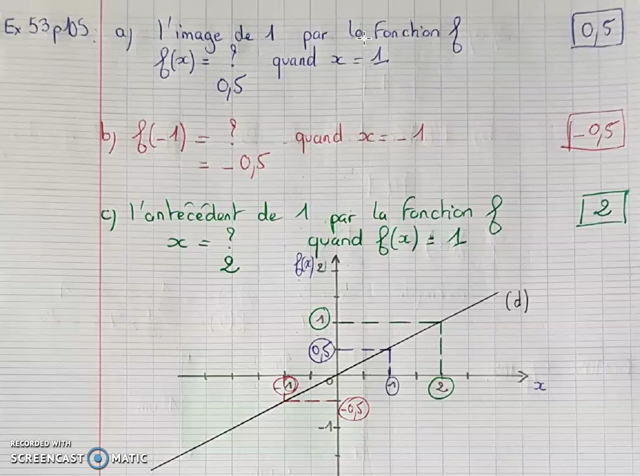 Ex 53p105. a) l'image de 1 par la fonction f 0,5
f(x) = ? quand x = 1
0,5
b) f(-1) = ? quand x = -1 -0,5
= -0,5
c) l'antécédent de 1 par la fonction f 2
x = ? quand f(x) = 1
2
f(x) 2
(d)
1
0,5
-1 0 1 2 x
-0,5
-1
RECORDED WITH
SCREENCAST MATIC